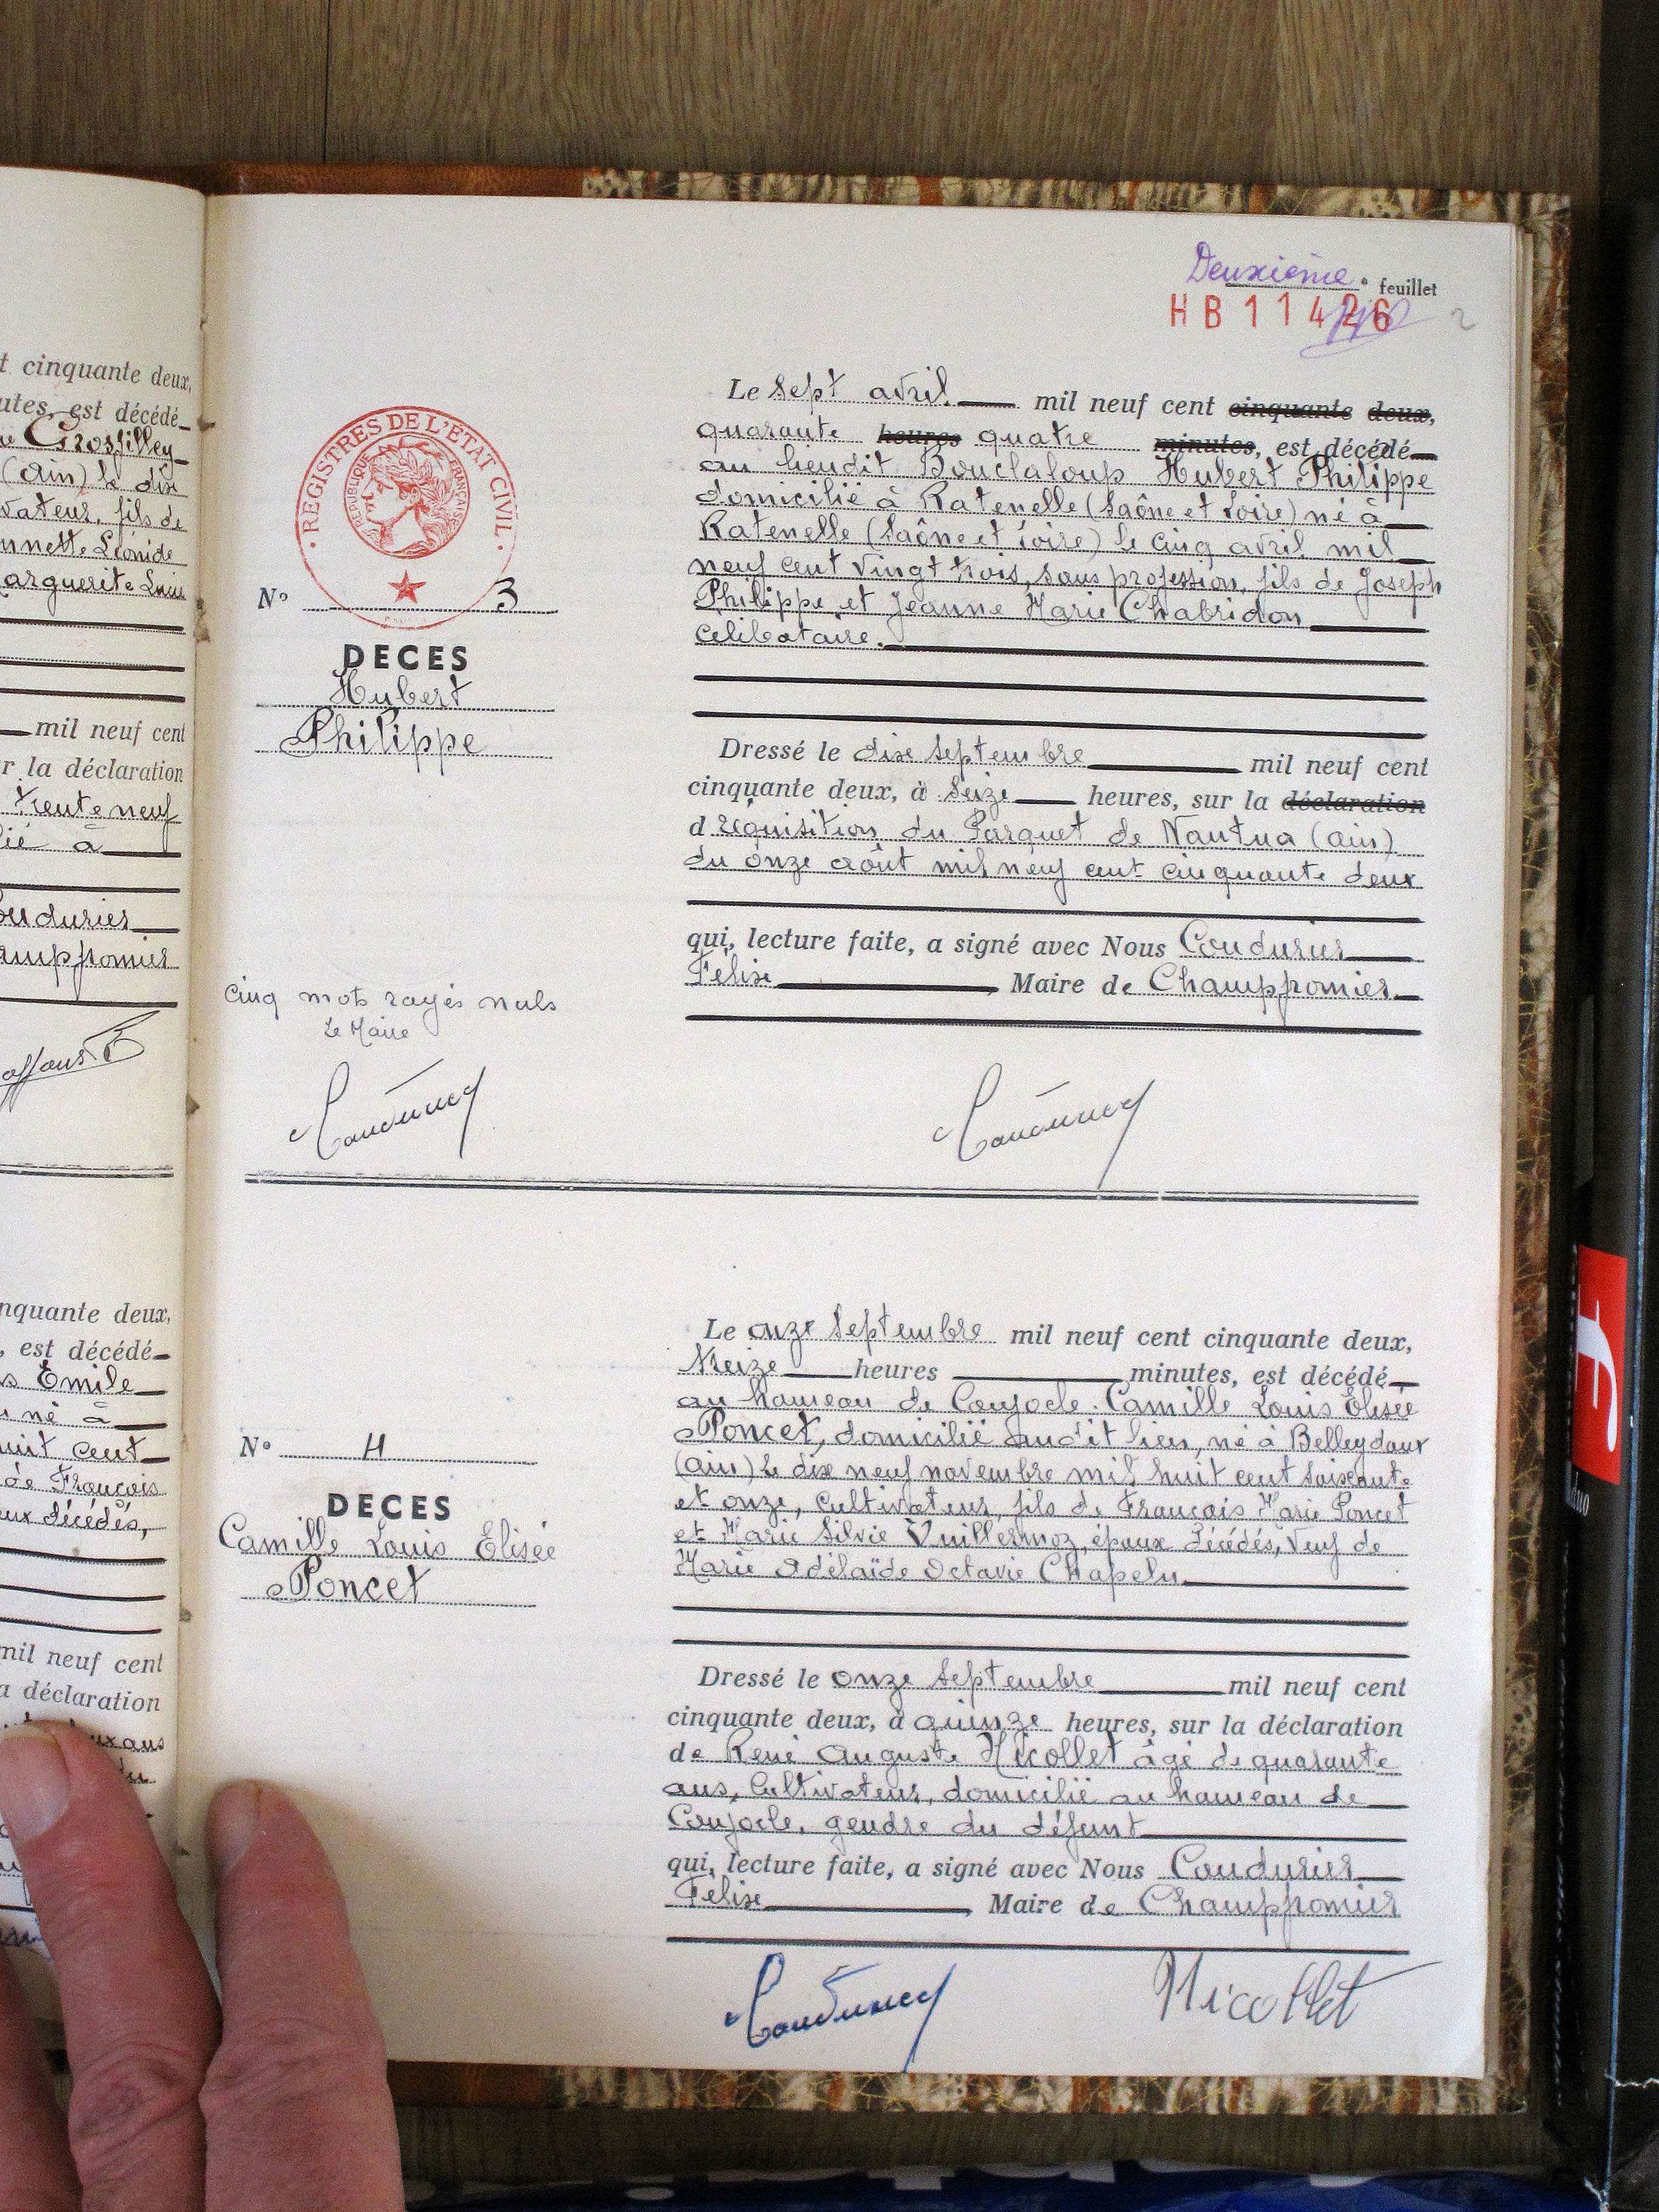 t cinquante deux,
utes, est décédé
Grosfilley
(ain) le dix
vateur, fils de
nnette Léonide
arguerite Luis
mil neuf cent
r la déclaration
trente neuf
lié à
Coudurier
ampfromier
nquante deux,
, est décédé
s Emile
né à
uit cent
de François
eux décédés,
mil neuf cent
a déclaration
ux ans
du
Deuxième e feuillet
HB 11426
2
REGISTRES DE L'ÉTAT CIVIL
RÉPUBLIQUE FRANÇAISE
N° 3
DECES
Hubert
Philippe
Le sept avril mil neuf cent cinquante deux,
quarante heures quatre minutes, est décédé
au lieudit Bouclaloup Hubert Philippe
domicilié à Ratenelle (Saône et Loire) né à
Ratenelle (Saône et Loire) le cinq avril mil
neuf cent vingt trois, sans profession, fils de Joseph
Philippe et Jeanne Marie Chabridon
celibataire.
Dressé le dix septembre mil neuf cent
cinquante deux, à seize heures, sur la déclaration
d réquisition du Parquet de Nantua (ain)
du onze août mil neuf cent cinquante deux
qui, lecture faite, a signé avec Nous Coudurier
Félix Maire de Champfromier
cinq mots rayés nuls
Le Maire
Coudurier
Coudurier
N° 4
DECES
Camille Louis Elisée
Poncet
Le onze septembre mil neuf cent cinquante deux,
treize heures minutes, est décédé
au hameau de Conjocle Camille Louis Elisée
Poncet, domicilié audit lieu, né à Belleydoux
(ain) le dix neuf novembre mil huit cent soixante
et onze, Cultivateur, fils de François Marie Poncet
et Marie Silvie Vuillermoz, époux décédés, Veuf de
Marie Adélaïde Octavie Chapelu
Dressé le onze septembre mil neuf cent
cinquante deux, à quinze heures, sur la déclaration
de René Auguste Nicollet âgé de quarante
ans, Cultivateur, domicilié au hameau de
Conjocle, gendre du défunt
qui, lecture faite, a signé avec Nous Coudurier
Félix Maire de Champfromier
Coudurier
Nicollet